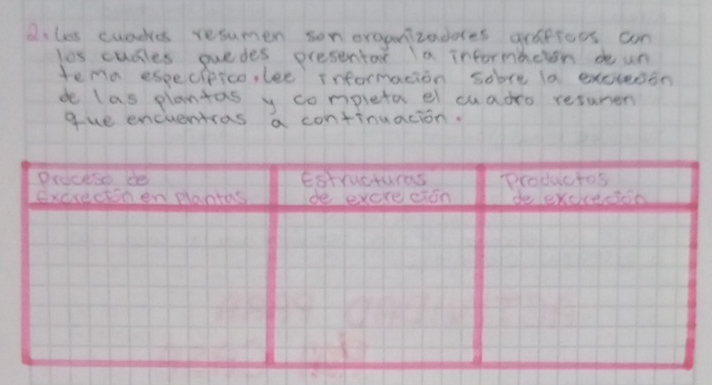 2. Los cuadros resumen son organizadores gráficos con
los cuáles puedes presentar la información de un
tema especifico. Lee información sobre la excreción
de las plantas y completa el cuadro resumen
que encuentras a continuación.
Proceso de Excreción en plantas
Estructuras de excreción
Productos de excreción